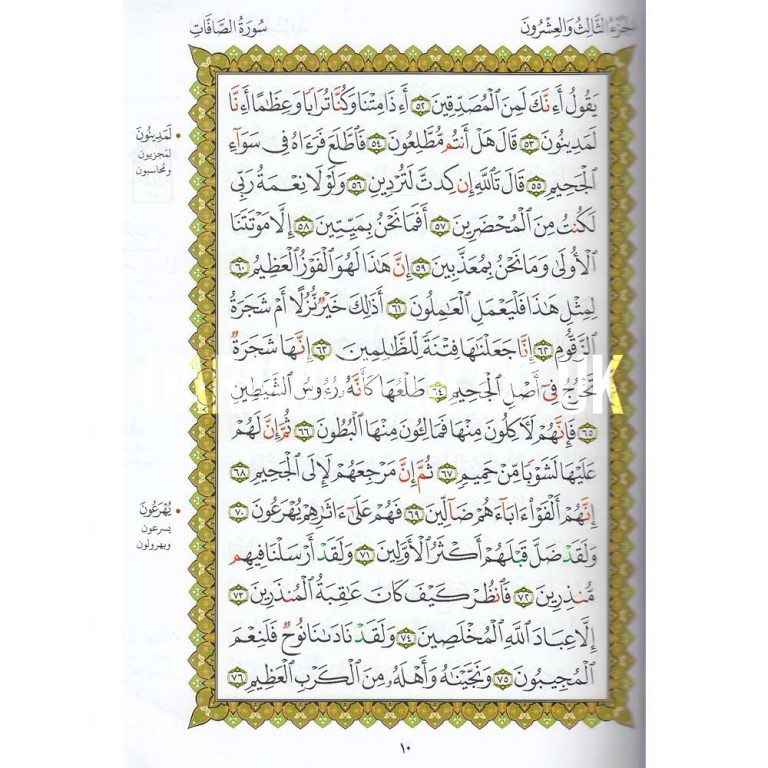 الجزء الثالث والعشرون
سورة الصافات
يَقُولُ أَءِنَّكَ لَمِنَ ٱلْمُصَدِّقِينَ ٥٢ أَءِذَا مِتْنَا وَكُنَّا تُرَابًا وَعِظَٰمًا أَءِنَّا
لَمَدِينُونَ ٥٣ قَالَ هَلْ أَنتُم مُّطَّلِعُونَ ٥٤ فَٱطَّلَعَ فَرَءَاهُ فِى سَوَآءِ
ٱلْجَحِيمِ ٥٥ قَالَ تَٱللَّهِ إِن كِدتَّ لَتُرْدِينِ ٥٦ وَلَوْلَا نِعْمَةُ رَبِّى
لَكُنتُ مِنَ ٱلْمُحْضَرِينَ ٥٧ أَفَمَا نَحْنُ بِمَيِّتِينَ ٥٨ إِلَّا مَوْتَتَنَا
ٱلْأُولَىٰ وَمَا نَحْنُ بِمُعَذَّبِينَ ٥٩ إِنَّ هَٰذَا لَهُوَ ٱلْفَوْزُ ٱلْعَظِيمُ ٦٠
لِمِثْلِ هَٰذَا فَلْيَعْمَلِ ٱلْعَٰمِلُونَ ٦١ أَذَٰلِكَ خَيْرٌ نُّزُلًا أَمْ شَجَرَةُ
ٱلزَّقُّومِ ٦٢ إِنَّا جَعَلْنَٰهَا فِتْنَةً لِّلظَّٰلِمِينَ ٦٣ إِنَّهَا شَجَرَةٌ
تَخْرُجُ فِىٓ أَصْلِ ٱلْجَحِيمِ ٦٤ طَلْعُهَا كَأَنَّهُۥ رُءُوسُ ٱلشَّيَٰطِينِ
٦٥ فَإِنَّهُمْ لَءَاكِلُونَ مِنْهَا فَمَالِـُٔونَ مِنْهَا ٱلْبُطُونَ ٦٦ ثُمَّ إِنَّ لَهُمْ
عَلَيْهَا لَشَوْبًا مِّنْ حَمِيمٍ ٦٧ ثُمَّ إِنَّ مَرْجِعَهُمْ لَإِلَى ٱلْجَحِيمِ ٦٨
إِنَّهُمْ أَلْفَوْا۟ ءَابَآءَهُمْ ضَآلِّينَ ٦٩ فَهُمْ عَلَىٰٓ ءَاثَٰرِهِمْ يُهْرَعُونَ ٧٠
وَلَقَدْ ضَلَّ قَبْلَهُمْ أَكْثَرُ ٱلْأَوَّلِينَ ٧١ وَلَقَدْ أَرْسَلْنَا فِيهِم
مُّنذِرِينَ ٧٢ فَٱنظُرْ كَيْفَ كَانَ عَٰقِبَةُ ٱلْمُنذَرِينَ ٧٣
إِلَّا عِبَادَ ٱللَّهِ ٱلْمُخْلَصِينَ ٧٤ وَلَقَدْ نَادَىٰنَا نُوحٌ فَلَنِعْمَ
ٱلْمُجِيبُونَ ٧٥ وَنَجَّيْنَٰهُ وَأَهْلَهُۥ مِنَ ٱلْكَرْبِ ٱلْعَظِيمِ ٧٦
• لَمَدِينُونَ
لمجزيون
ومُحاسبون
• يُهْرَعُونَ
يسرعون
ويهرولون
١٠